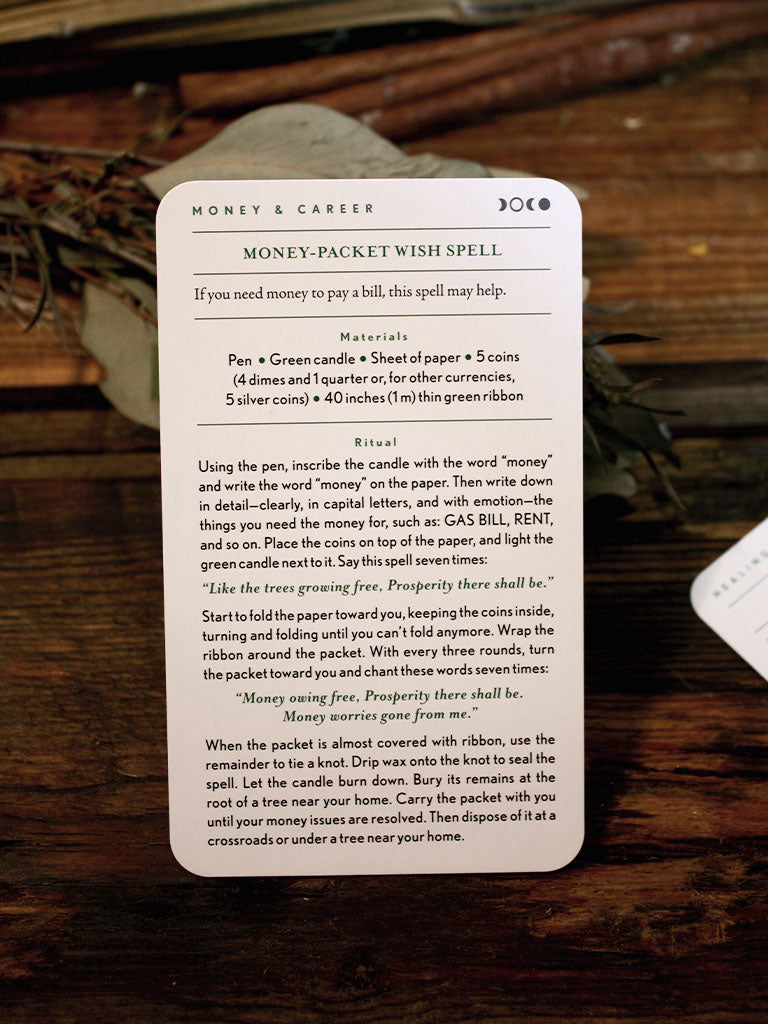 MONEY & CAREER
MONEY-PACKET WISH SPELL
If you need money to pay a bill, this spell may help.
Materials
Pen • Green candle • Sheet of paper • 5 coins
(4 dimes and 1 quarter or, for other currencies,
5 silver coins) • 40 inches (1 m) thin green ribbon
Ritual
Using the pen, inscribe the candle with the word “money”
and write the word “money” on the paper. Then write down
in detail—clearly, in capital letters, and with emotion—the
things you need the money for, such as: GAS BILL, RENT,
and so on. Place the coins on top of the paper, and light the
green candle next to it. Say this spell seven times:
“Like the trees growing free, Prosperity there shall be.”
Start to fold the paper toward you, keeping the coins inside,
turning and folding until you can’t fold anymore. Wrap the
ribbon around the packet. With every three rounds, turn
the packet toward you and chant these words seven times:
“Money owing free, Prosperity there shall be.
Money worries gone from me.”
When the packet is almost covered with ribbon, use the
remainder to tie a knot. Drip wax onto the knot to seal the
spell. Let the candle burn down. Bury its remains at the
root of a tree near your home. Carry the packet with you
until your money issues are resolved. Then dispose of it at a
crossroads or under a tree near your home.
HEALING